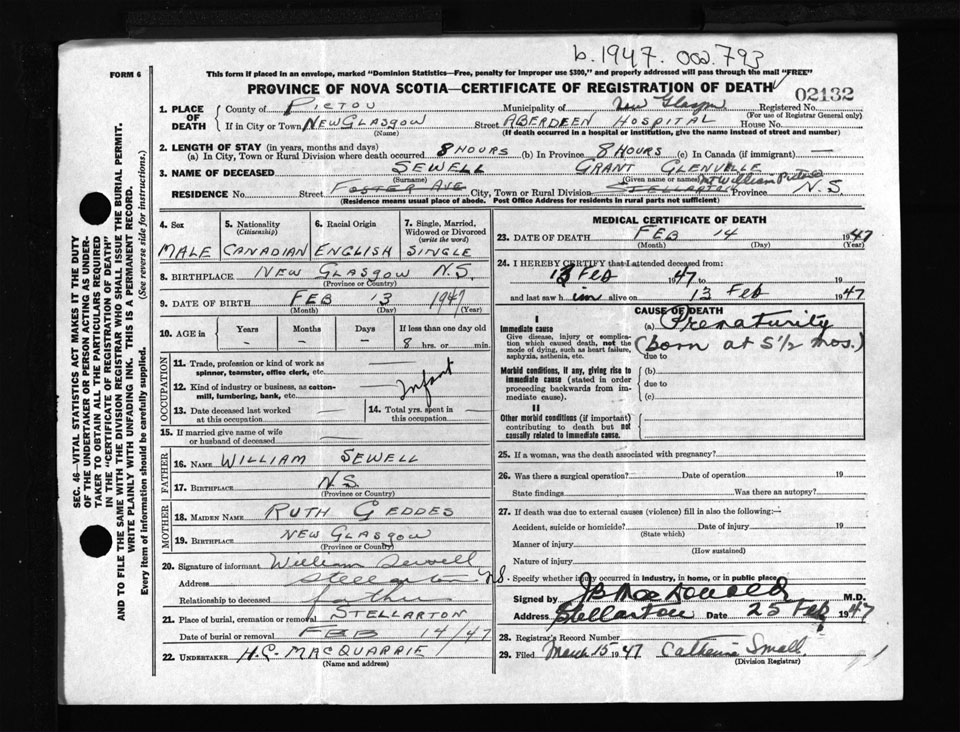 b. 1947. 000.793
FORM 6
This form if placed in an envelope, marked "Dominion Statistics—Free, penalty for improper use $300," and properly addressed will pass through the mail "FREE"
PROVINCE OF NOVA SCOTIA—CERTIFICATE OF REGISTRATION OF DEATH
02132
1. PLACE OF DEATH
County of PICTOU Municipality of New Glasgow Registered No.
(For use of Registrar General only)
If in City or Town NEW GLASGOW Street ABERDEEN HOSPITAL House No.
(Name) (If death occurred in a hospital or institution, give the name instead of street and number)
2. LENGTH OF STAY (in years, months and days)
(a) In City, Town or Rural Division where death occurred 8 HOURS (b) In Province 8 HOURS (c) In Canada (if immigrant) —
3. NAME OF DECEASED SEWELL GRANT GLENVILLE
(Surname) (Given name or names) Mt William Pictou
RESIDENCE No. Street FOSTER AVE City, Town or Rural Division STELLARTON Province N.S.
(Residence means usual place of abode. Post Office Address for residents in rural parts not sufficient)
SEC. 46—VITAL STATISTICS ACT MAKES IT THE DUTY
OF THE UNDERTAKER OR PERSON ACTING AS UNDER-
TAKER TO OBTAIN ALL THE PARTICULARS REQUIRED
IN THE "CERTIFICATE OF REGISTRATION OF DEATH"
AND TO FILE THE SAME WITH THE DIVISION REGISTRAR WHO SHALL ISSUE THE BURIAL PERMIT.
WRITE PLAINLY WITH UNFADING INK. THIS IS A PERMANENT RECORD.
Every item of information should be carefully supplied. (See reverse side for instructions.)
4. Sex 5. Nationality (Citizenship) 6. Racial Origin 7. Single, Married, Widowed or Divorced (write the word)
MALE CANADIAN ENGLISH SINGLE
8. BIRTHPLACE NEW GLASGOW N.S.
(Province or Country)
9. DATE OF BIRTH FEB 13 1947
(Month) (Day) (Year)
10. AGE in Years Months Days If less than one day old
- - - 8 hrs. or min.
OCCUPATION
11. Trade, profession or kind of work as spinner, teamster, office clerk, etc.
12. Kind of industry or business, as cotton-mill, lumbering, bank, etc.
Infant
13. Date deceased last worked at this occupation
14. Total yrs. spent in this occupation
15. If married give name of wife or husband of deceased
FATHER
16. NAME WILLIAM SEWELL
17. BIRTHPLACE N.S.
(Province or Country)
MOTHER
18. MAIDEN NAME RUTH GEDDES
19. BIRTHPLACE NEW GLASGOW
(Province or Country)
20. Signature of informant William Sewell
Address Stellarton N.S.
Relationship to deceased father
21. Place of burial, cremation or removal STELLARTON
Date of burial or removal FEB 14/47
22. UNDERTAKER H.C. MACQUARRIE
(Name and address)
MEDICAL CERTIFICATE OF DEATH
23. DATE OF DEATH FEB 14 1947
(Month) (Day) (Year)
24. I HEREBY CERTIFY that I attended deceased from:
13 Feb 1947 to 19
and last saw him alive on 13 Feb 1947
CAUSE OF DEATH
I
Immediate cause
Give disease, injury or complication which caused death, not the mode of dying, such as heart failure, asphyxia, asthenia, etc.
(a) Prematurity
(born at 5 1/2 mos.)
due to
Morbid conditions, if any, giving rise to immediate cause (stated in order proceeding backwards from immediate cause).
(b)
due to
(c)
II
Other morbid conditions (if important) contributing to death but not causally related to immediate cause.
25. If a woman, was the death associated with pregnancy?
26. Was there a surgical operation? Date of operation 19
State findings Was there an autopsy?
27. If death was due to external causes (violence) fill in also the following:—
Accident, suicide or homicide? Date of injury 19
(State which)
Manner of injury
(How sustained)
Nature of injury
Specify whether injury occurred in industry, in home, or in public place
Signed by JB MacDonald M.D.
Address Stellarton Date 25 Feb 1947
28. Registrar's Record Number
29. Filed March 15 1947 Catherine Small
(Division Registrar)